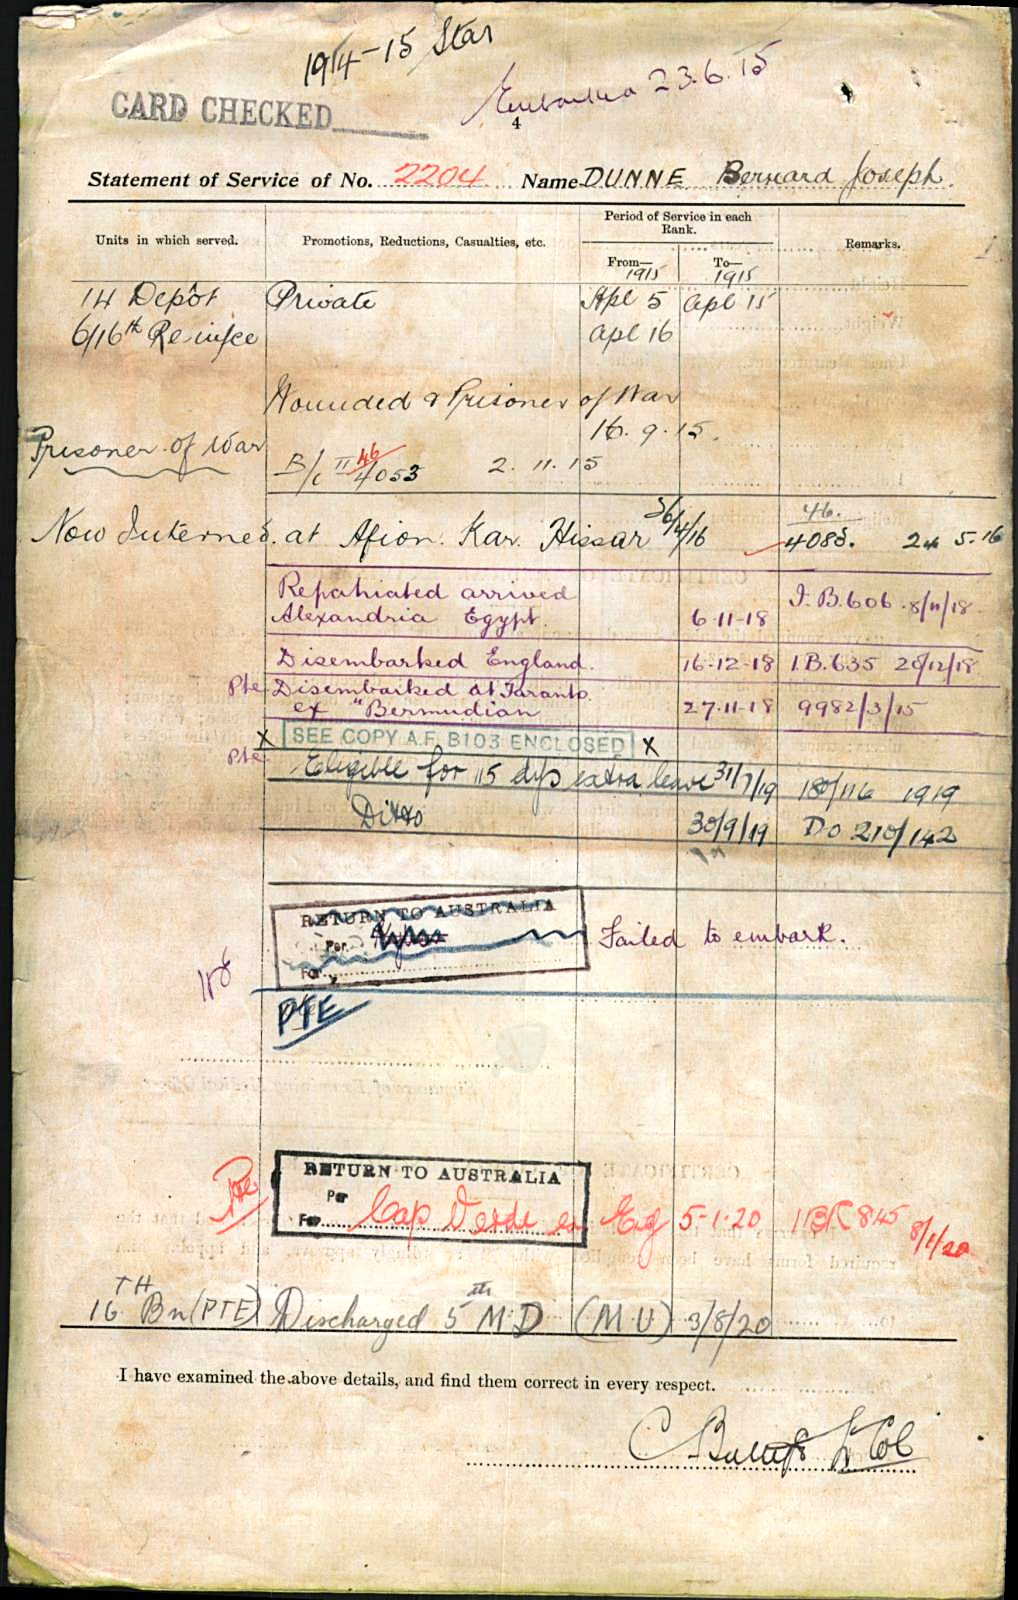 1914-15 Star
Embarked 23.6.15
CARD CHECKED
4
Statement of Service of No. 2204 Name DUNNE Bernard Joseph.
Units in which served. Promotions, Reductions, Casualties, etc. Period of Service in each Rank. Remarks.
From— To—
1915 1915
14 Depôt Private Apl 5 Apl 15
6/16th Reinfce Apl 16
Wounded & Prisoner of War
16.9.15.
Prisoner of War
B/c II 46/4053 2.11.15
Now Interned at Afion Kar Hissar 4/16 46. 4083. 24 5.16
Repatriated arrived
Alexandria Egypt. 6-11-18 I.B.606. 8/11/18
Disembarked England. 16-12-18 I.B.635 20/12/18
Pte Disembarked at Taranto
ex "Bermudian 27-11-18 9982/3/15
X SEE COPY A.F. B103 ENCLOSED X
Pte Eligible for 115 dys extra leave 31/7/19 180/116 1919
Ditto 30/9/19 Do 210/142
RETURN TO AUSTRALIA
Per
For
Failed to embark.
PTE
RETURN TO AUSTRALIA
Per
Pte For Cap Verde ex Eng 5-1-20 845 8/1/20
16TH Bn (PTE) Discharged 5th M.D (M.U) 3/8/20
I have examined the above details, and find them correct in every respect.
Lt Col